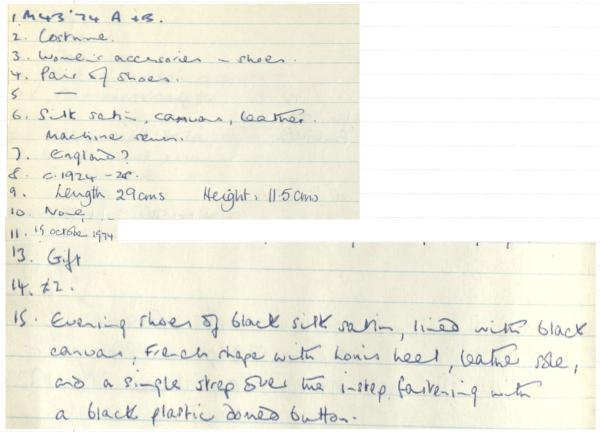 1 M43'74 A + B.
2. Costume.
3. Women's accessories – shoes.
4. Pair of shoes.
5 —
6. Silk satin, canvas, leather.
Machine sewn.
7. England?
8. c.1924 – 28.
9. Length 29cms Height: 11.5cms
10. None
11. 15 october 1974
13. Gift
14. £2.
15. Evening shoes of black silk satin, lined with black
canvas, French shape with Louis heel, leather sole,
and a single strap over the instep fastening with
a black plastic domed button.